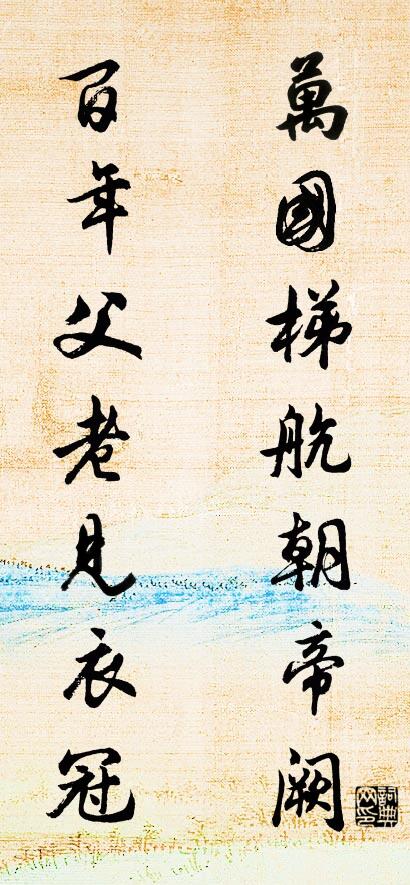 萬國梯航朝帝闕
百年父老見衣冠